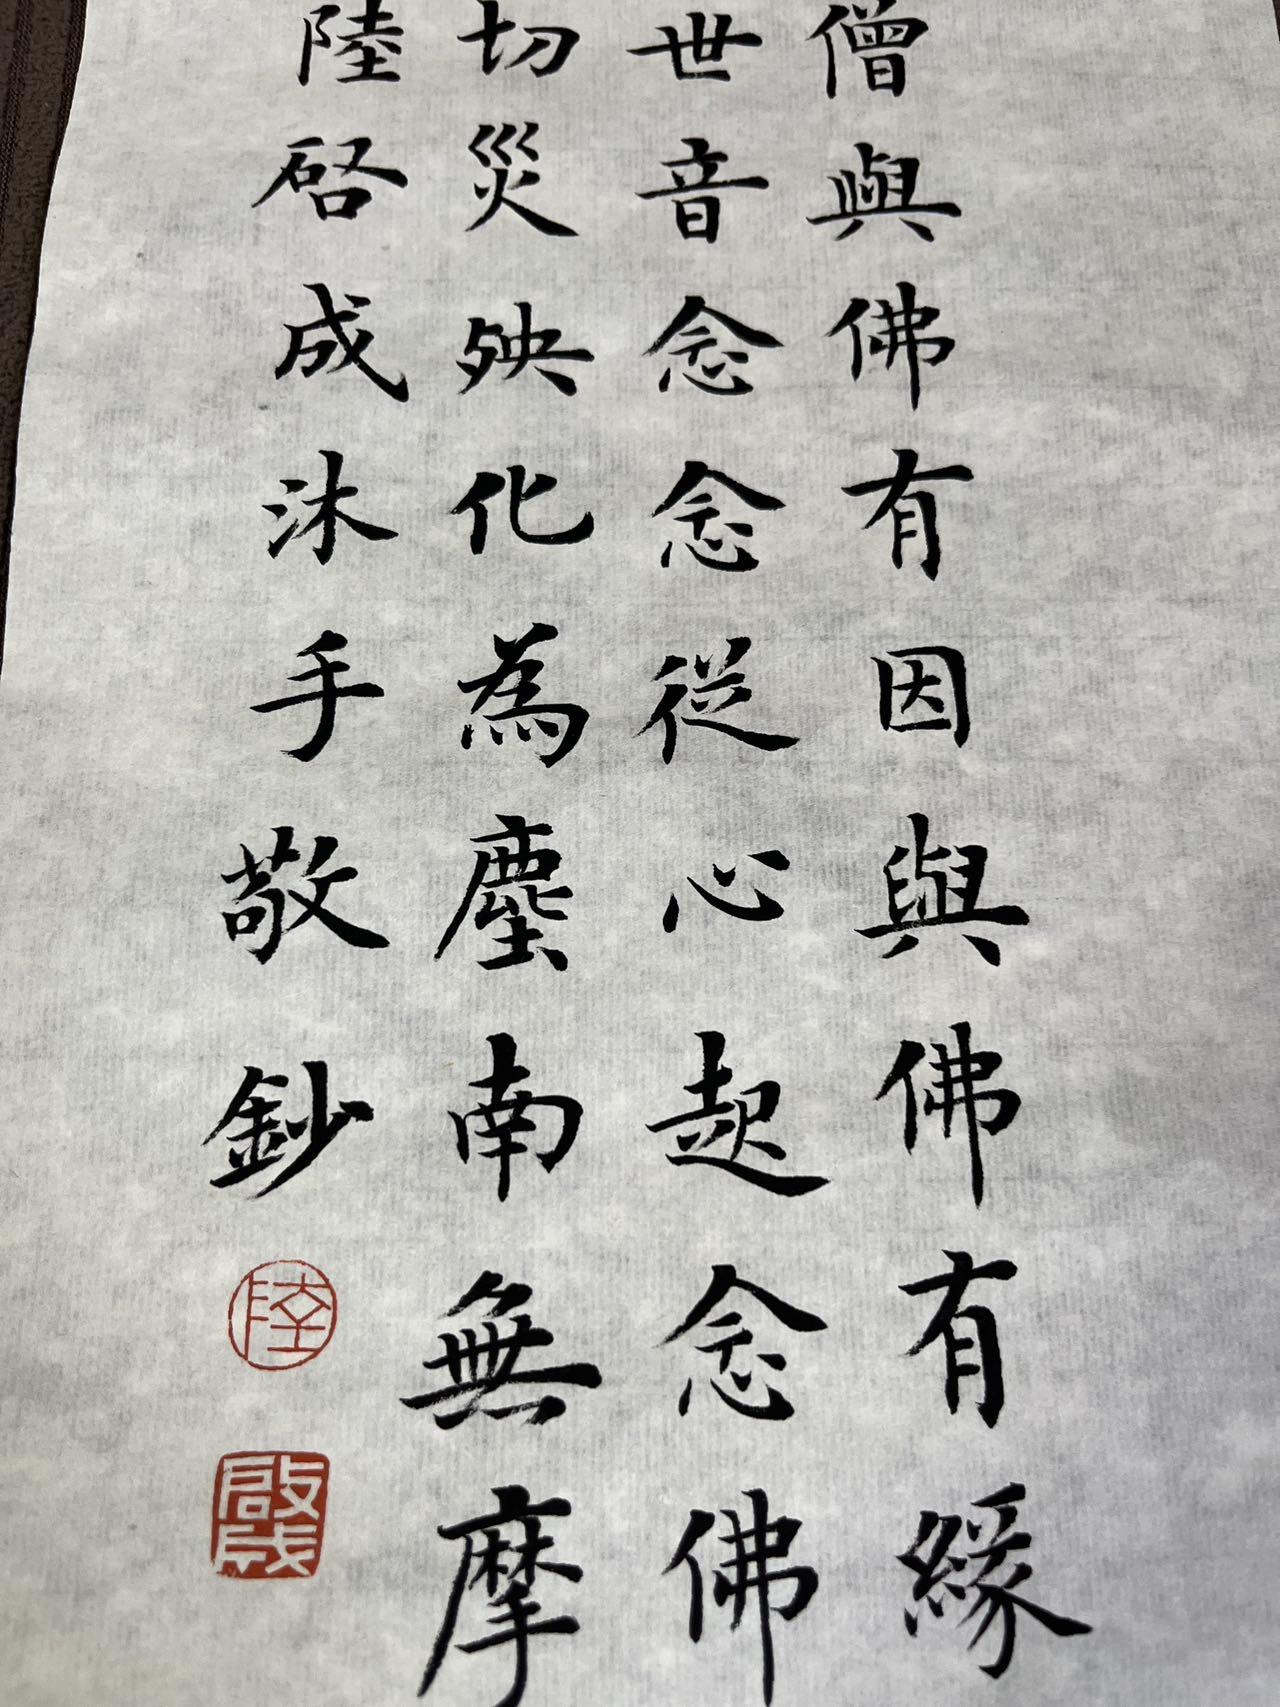 僧與佛有因與佛有緣
世音念念從心起念佛
切災殃化為塵南無摩
陸啓成沐手敬鈔
陸
啟成